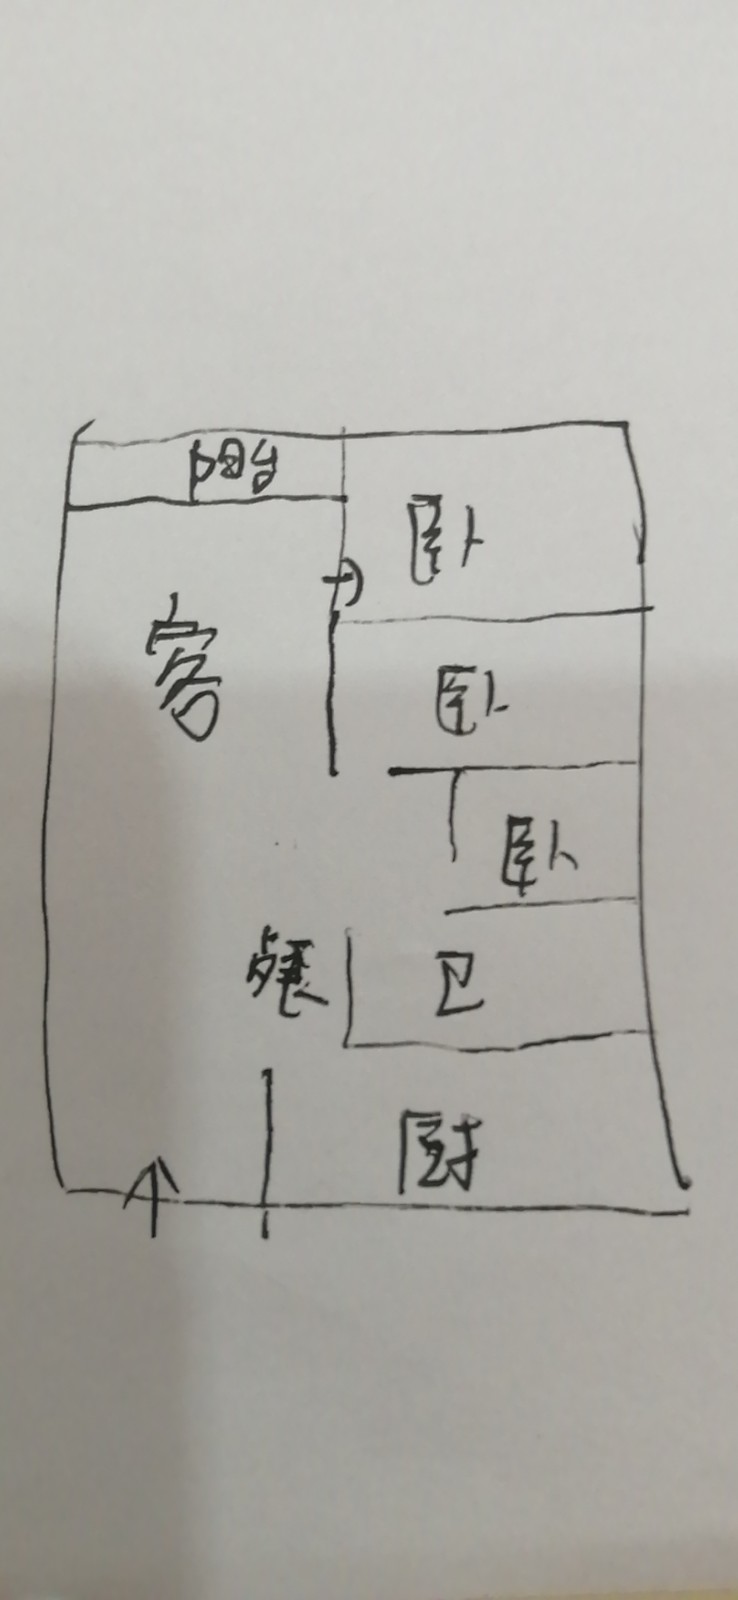 阳台
卧
客
卧
卧
餐
卫
厨